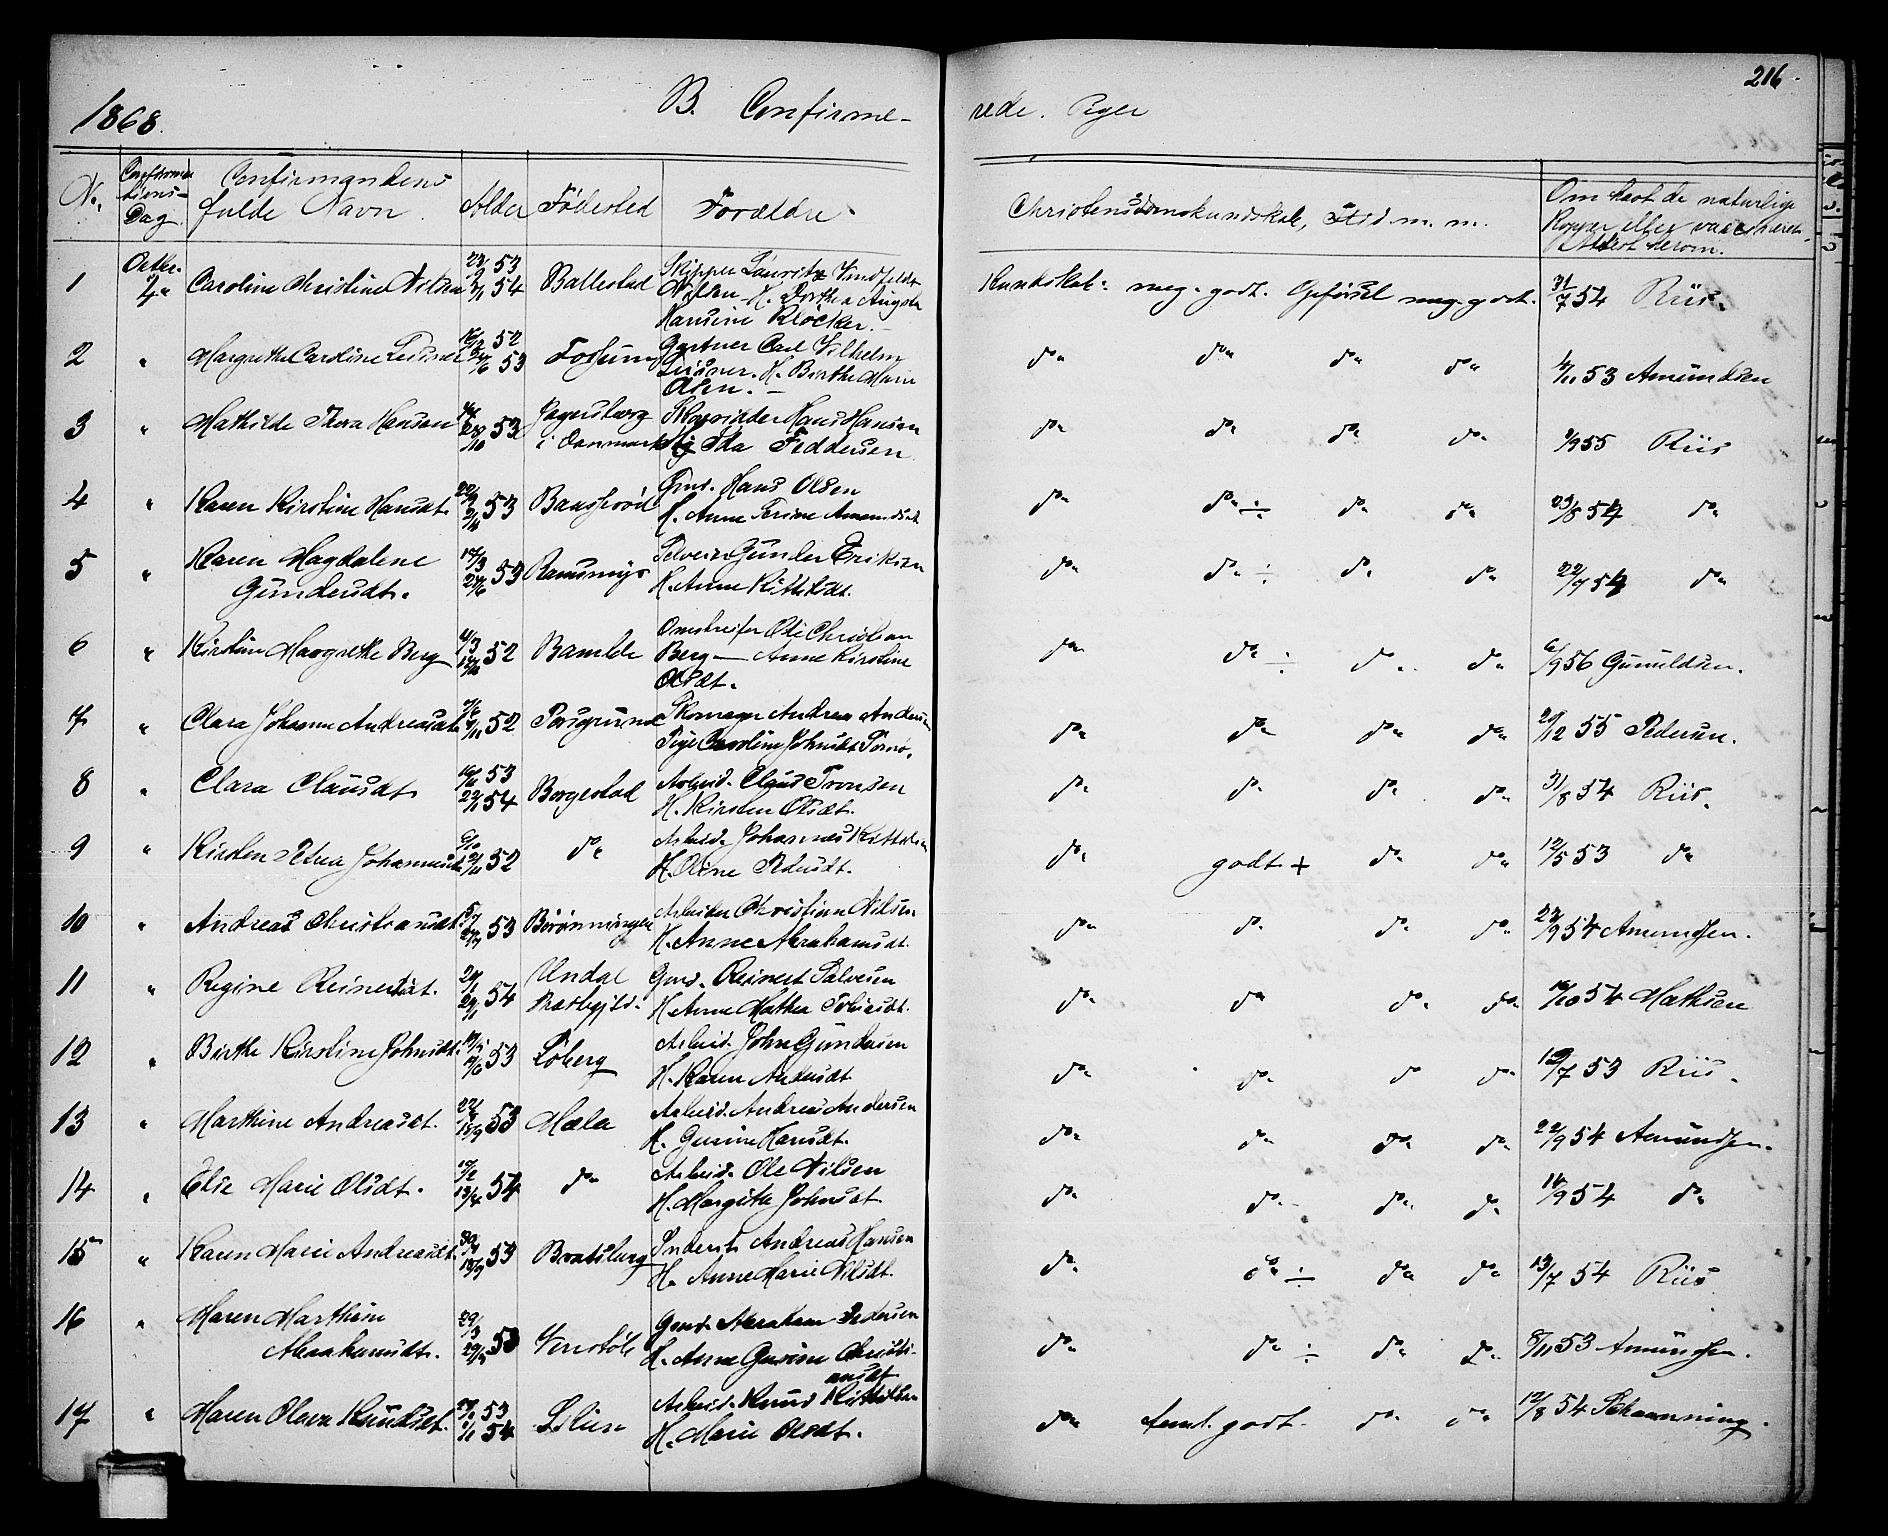 216.
1868.
B. Confirme-
rede. Piger
No.
Confirma
tions-
Dag
Confirmandens
fulde Navn.
Alder
Fødested
Forældre.
Christendomskundskab, Flid m. m.
Om havt de naturlige
Kopper eller vaccineret.
Attest herom.
1 Octbr. 4de Caroline Christine Nilsen 53 2/1 54 Ballestad Skipper Lauritz Vindfeldt
Nilsen H. Dorthea Augusta
Hansine Kløcker.
Kundskab: meg. godt. Opførsel meg. godt. 31/7 54 Riis.
2 " Margrethe Caroline Leisner 52 53 Fossum Gartner Carl Vilhelm
Leisner. H. Birthe Marie
Olsen.
do do do do 4/11 53 Amundsen
3 " Mathilde Thora Hansen 53 Jægersborg
i Danmark Skovrider Hans Hansen
Ida Feddersen
do do do do 1/9 55 Riis
4 " Karen Kirstine Hansdt. 53 Baasserød Grmd. Hans Olsen
H. Anne Terine Amundsdt
do do ÷ do do 23/8 54 do
5 " Karen Magdalene
Gundersdt. 53 Ramsmyr Selveier Gunder Eriksen
H. Anne Kittilsdt.
do do ÷ do do 22/7 54 do
6 " Kirstine Margrethe Berg 52 Bamble Omstreifer Ole Christian
Berg — Anne Kirstine
Olsdt.
do do ÷ do do 6/9 56 Gunuldsen.
7 " Clara Johanne Andreasdt. 52 Porsgrund Skomager Andreas Andersen
Pige Caroline Johnsdt Tornø.
do do do do 20/12 55 Pedersen.
8 " Clara Clausdt 53 22/1 54 Borgestad Arbeid. Claus Tronsen
H. Kirsten Olsdt.
do do do do 31/8 54 Riis.
9 " Kirsten Petrea Johannesdt. 52 do Arbeid. Johannes Kittilsen
H. Oline Pedersdt.
do godt + do do 12/5 53 do
10 " Andrea Christiansdt. 53 Arbeider Christian Nilsen
H. Anne Abrahamsdt.
do do do do 23/9 54 Amundsen.
11 " Regine Reinertsdt. 54 Undal
Præstegjld. Grmd. Reinert Salvesen
H. Anne Mathea Tobiasdt.
do do do do 16/10 54 Mathsen
12 " Birthe Kirstine Johnsdt. 53 Løberg Arbeid. John Gundersen
H. Karen Andersdt
do do do do 12/7 53 Riis.
13 " Marthine Andreasdt. 53 Mæla Arbeid. Andreas Andersen
H. Gurine Hansdt.
do do do do 22/9 54 Amundsen.
14 " Else Marie Olsdt. 13/4 54 do Arbeid. Ole Nilsen
H. Margith Johnsdt
do do do do 14/9 54 do
15 " Karen Marie Andreasdt. 53 Bratsberg Inderst. Andreas Hansen
H. Anne Marie Nilsdt.
do do ÷ do do 13/7 54 Riis
16 " Maren Marthine
Abrahamsdt. 53 Venstøb Grmd. Abraham Pedersen
H. Anne Gurine Christi-
ansdt
do do ÷ do do 8/11 53 Amundsen.
17 " Maren Olava Knudsdt. 53 1/1 54 Arbeid. Knud Kittilsen
H. Marie Olsdt.
do teml. godt. do do 12/8 54 Schanning.